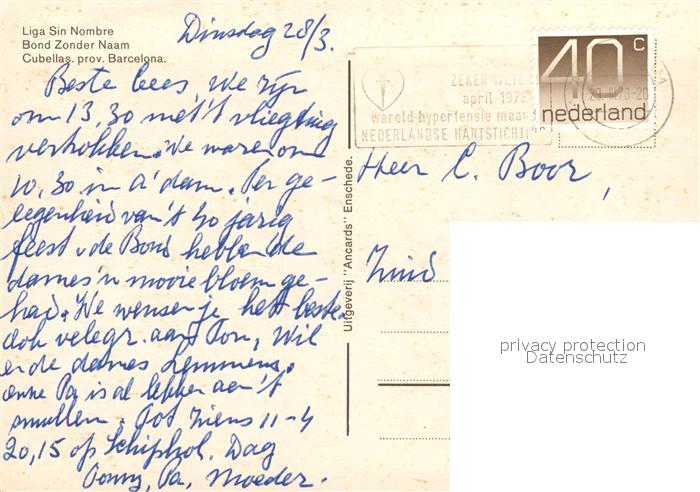 Liga Sin Nombre
Bond Zonder Naam
Cubellas. prov. Barcelona.
Dinsdag 28/3.
Beste Cees, We zijn
om 13,30 met 't vliegtuig
vertrokken. We waren om
10,30 in A'dam. Per ge-
legenheid van 't 40 jarig
feest v de Bond hebben de
dames 'n mooie bloem ge-
had. We wensen je het beste
ook velegr. aan Ton, Wil
en de dames Lemmens.
onze Pa is al lekker aan 't
smullen. Tot ziens 11-4
20,15 op Schiphol. Dag
Pa, Moeder.
Uitgeverij "Ancards" Enschede.
ZEKER WETE
april 1978
wereld hypertensie maan
NEDERLANDSE HARTSTICHTI
40c
nederland
Heer C. Boor,
Zuid
privacy protection
Datenschutz